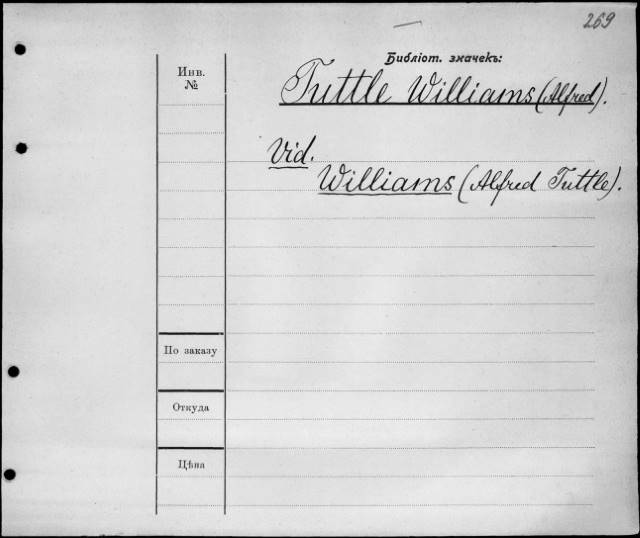 269
Библіот. значекъ:
Инв.
№
Tuttle Williams (Alfred).
Vid.
Williams (Alfred Tuttle).
По заказу
Откуда
Цѣна